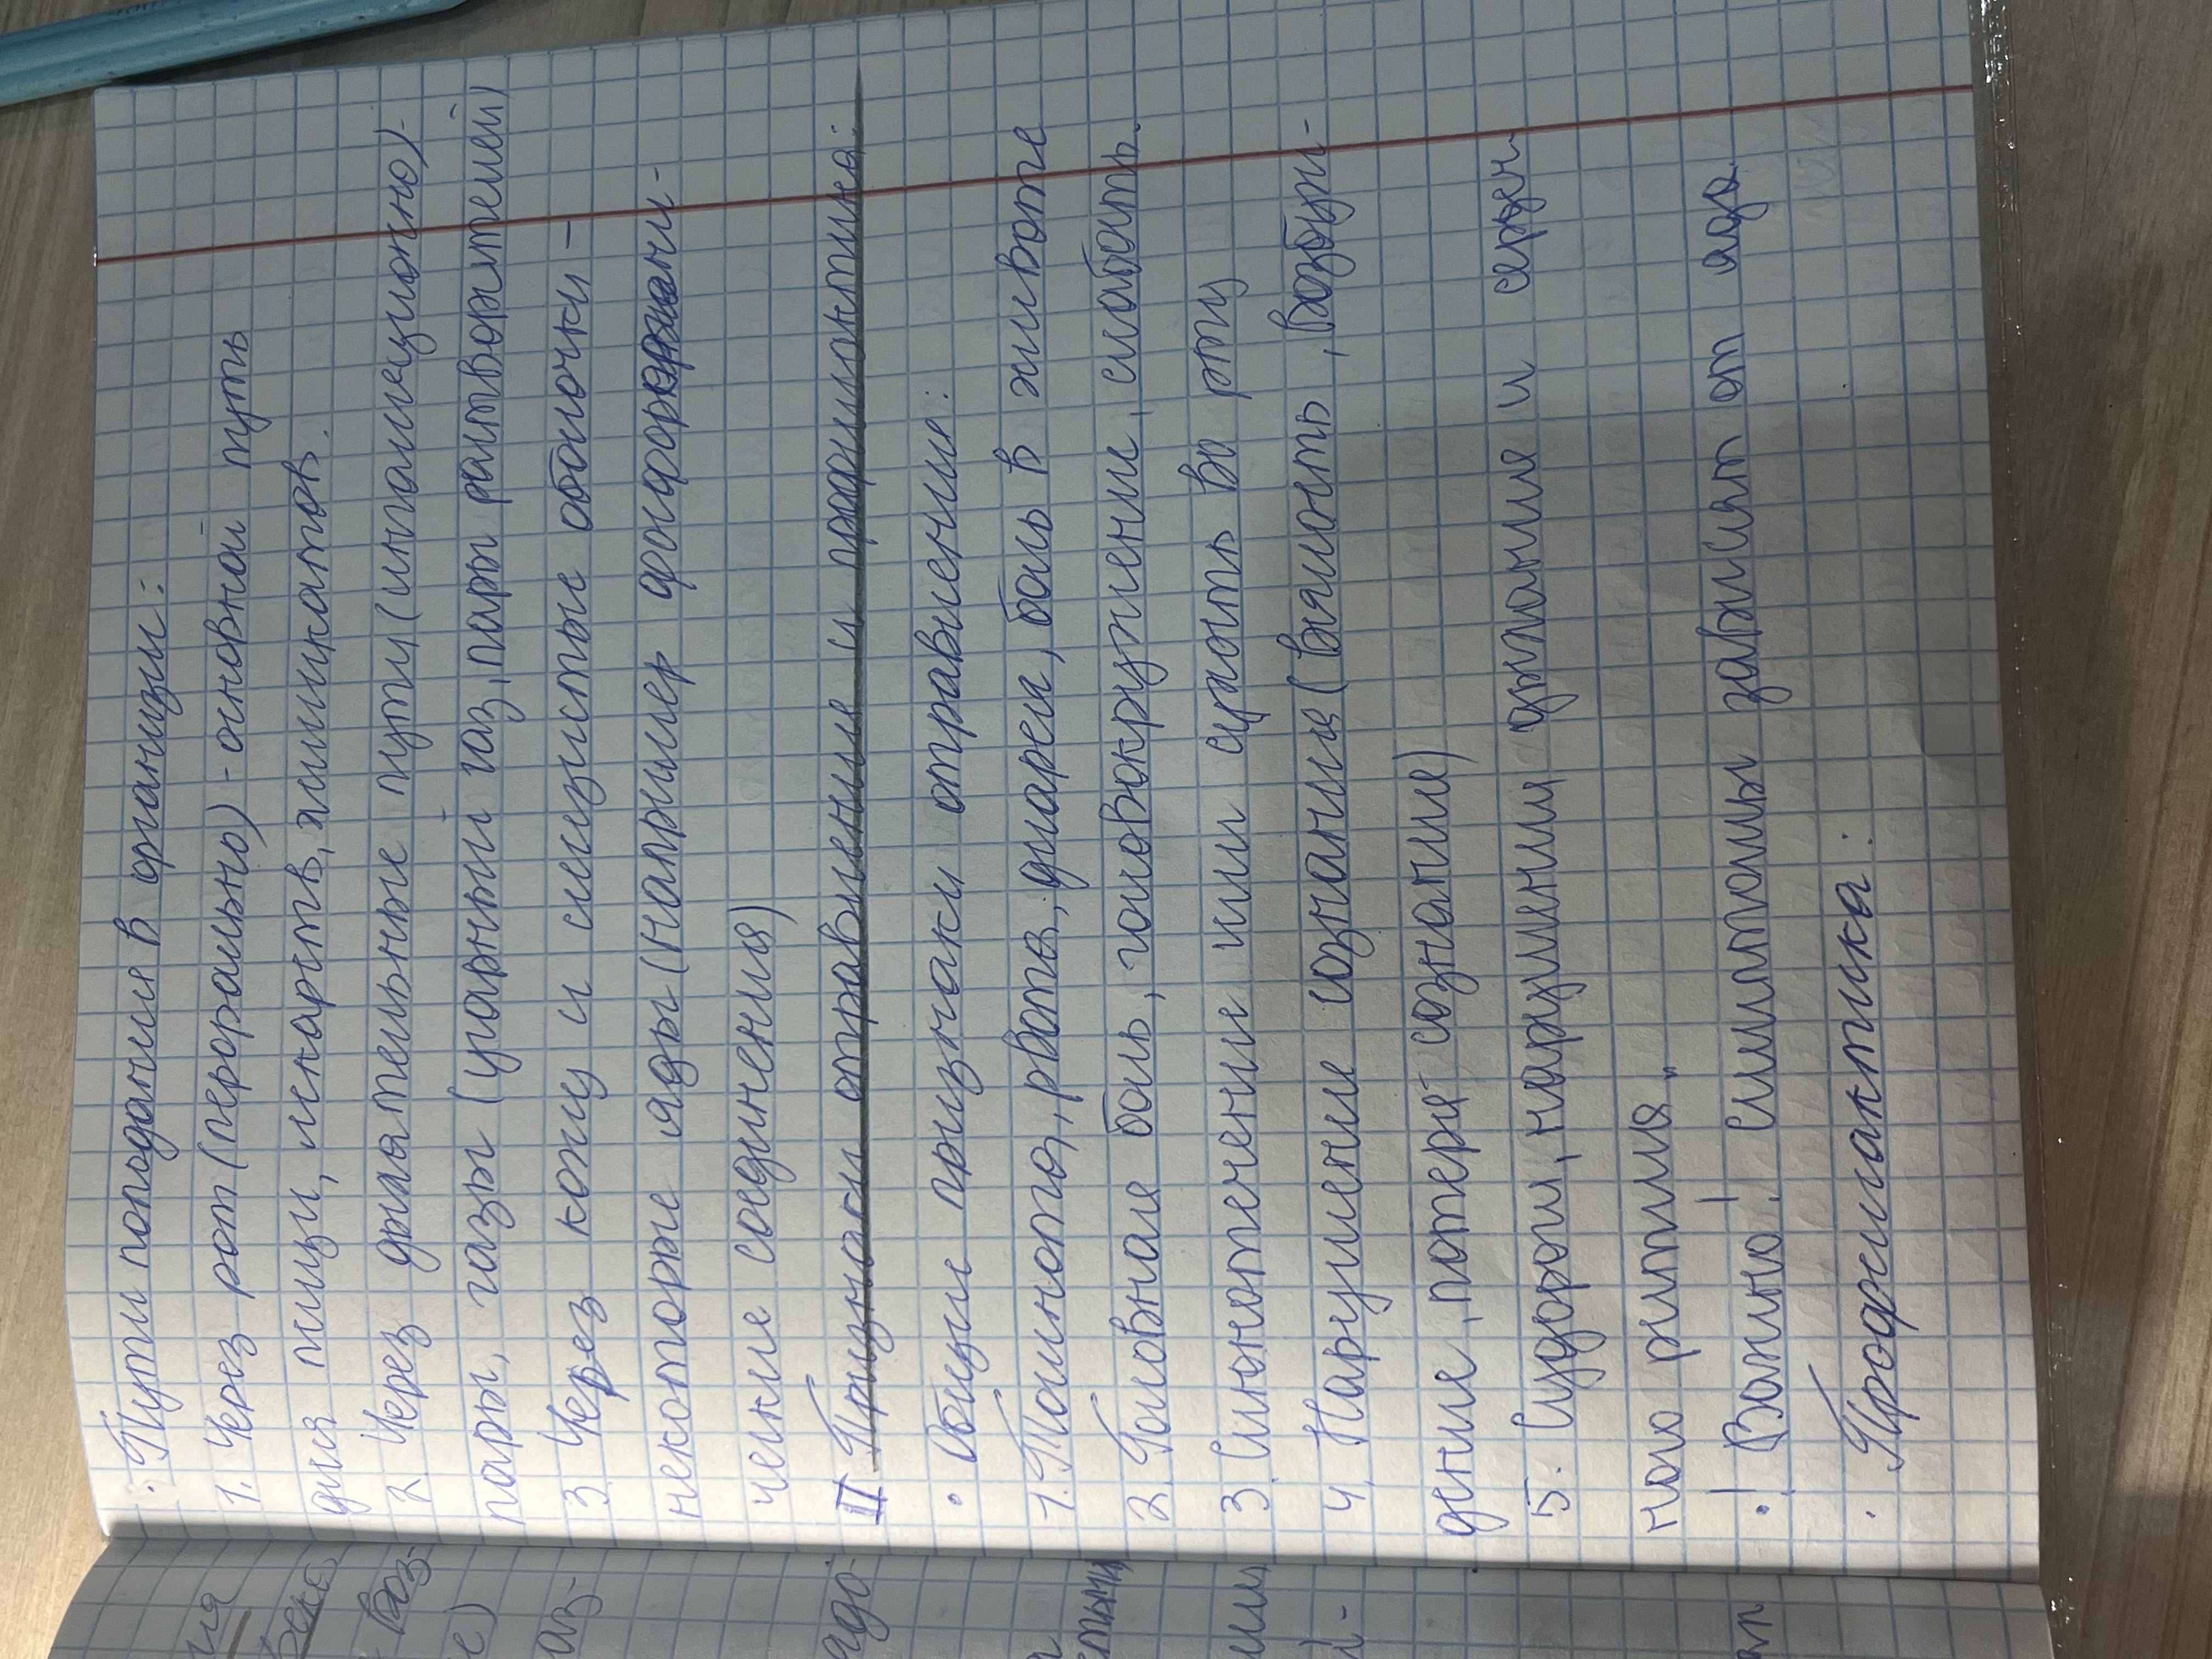 · Пути попадания в организм:
1. Через рот (перорально) - основной путь
для пищи, лекарств, химикатов.
2 Через дыхательные пути (ингаляционно) -
пары, газы (угарный газ, пары растворителей)
3. Через кожу и слизистые оболочки -
некоторые яды (например фосфоргани-
ческие соединения)
II Признаки отравления и профилактика:
• Общие признаки отравление:
1. Тошнота, рвота, диарея, боль в животе
2. Головная боль, головокружение, слабость.
3. Слюнотечение или сухость во рту
4. Нарушение сознания (вялость, возбуж-
дение, потеря сознание)
5. Судороги, нарушения дыхание и сердеч
ного ритма.
• ! Важно! Симптомы зависят от яда.
· Профилактика:
ия
воз-
е)
аз-
адо-